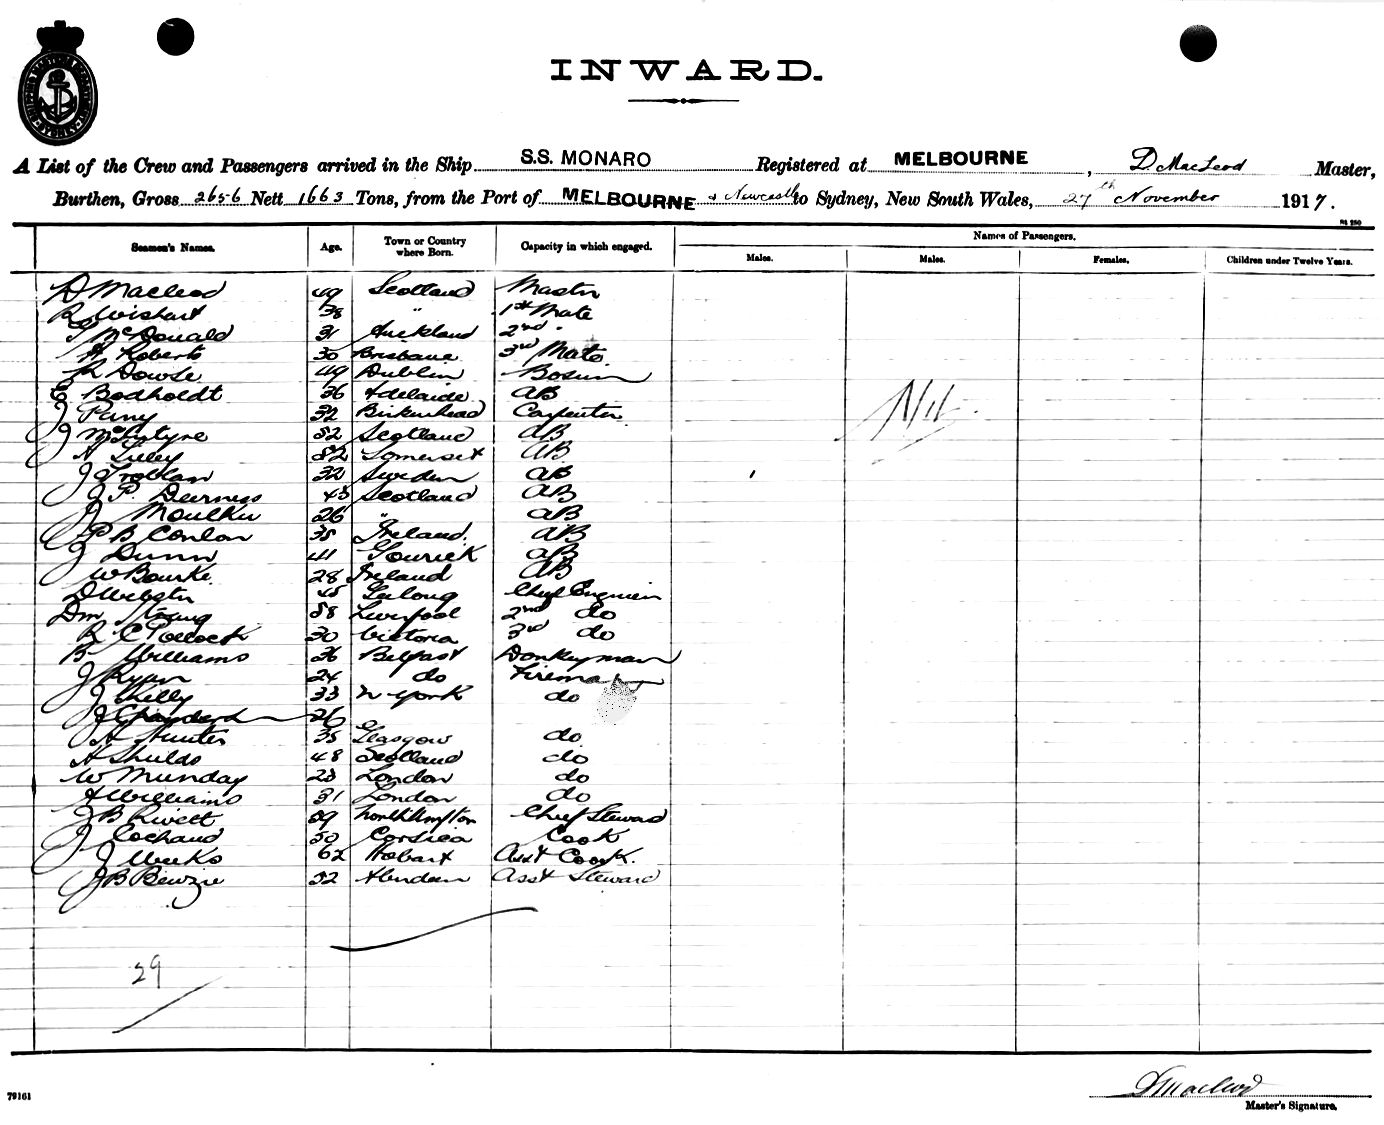 SHIPPING MASTER'S DEPARTMENT SYDNEY
INWARD.
A List of the Crew and Passengers arrived in the Ship S.S. MONARO Registered at MELBOURNE, D. MacLeod Master,
Burthen, Gross 2656 Nett 1663 Tons, from the Port of MELBOURNE & Newcastle to Sydney, New South Wales, 27th November 1917.
Seamen's Names. Age. Town or Country where Born. Capacity in which engaged. Names of Passengers.
Males. Males. Females. Children under Twelve Years.
D Macleod 49 Scotland Master
R Wishart 38 " 1st Mate
McDonald 31 Auckland 2nd "
H Roberts 30 Brisbane 3rd Mate
R Dowse 49 Dublin Bosun
E Bodholdt 36 Adelaide AB
J Parry 32 Birkenhead Carpenter
Nil
J McIntyre 52 Scotland AB
A Lilley 52 Somerset AB
J 32 Sweden AB
J P. Deerness 43 Scotland AB
J 26 " AB
P B Conlon 35 Ireland. AB
J Dunn 41 Gourick AB
W Bourke 28 Ireland AB
D Webster 45 Geelong Chief Engineer
Dm Young 58 Liverpool 2nd do
R C Pollock 30 Victoria 3rd do
B Williams 36 Belfast Donkeyman
J Ryan 24 do Fireman
J Kelly 33 N York do
J 26
A Hunter 35 Glasgow do
A Shields 48 Scotland do
W Munday 23 London do
A Williams 31 London do
J B Rivett 39 Northampton Chief Steward
J Cochaud 50 Corsica Cook
J Weeks 62 Hobart Asst Cook.
J B 52 Aberdeen Asst Steward
29
D Macleod
79161
Master's Signature.